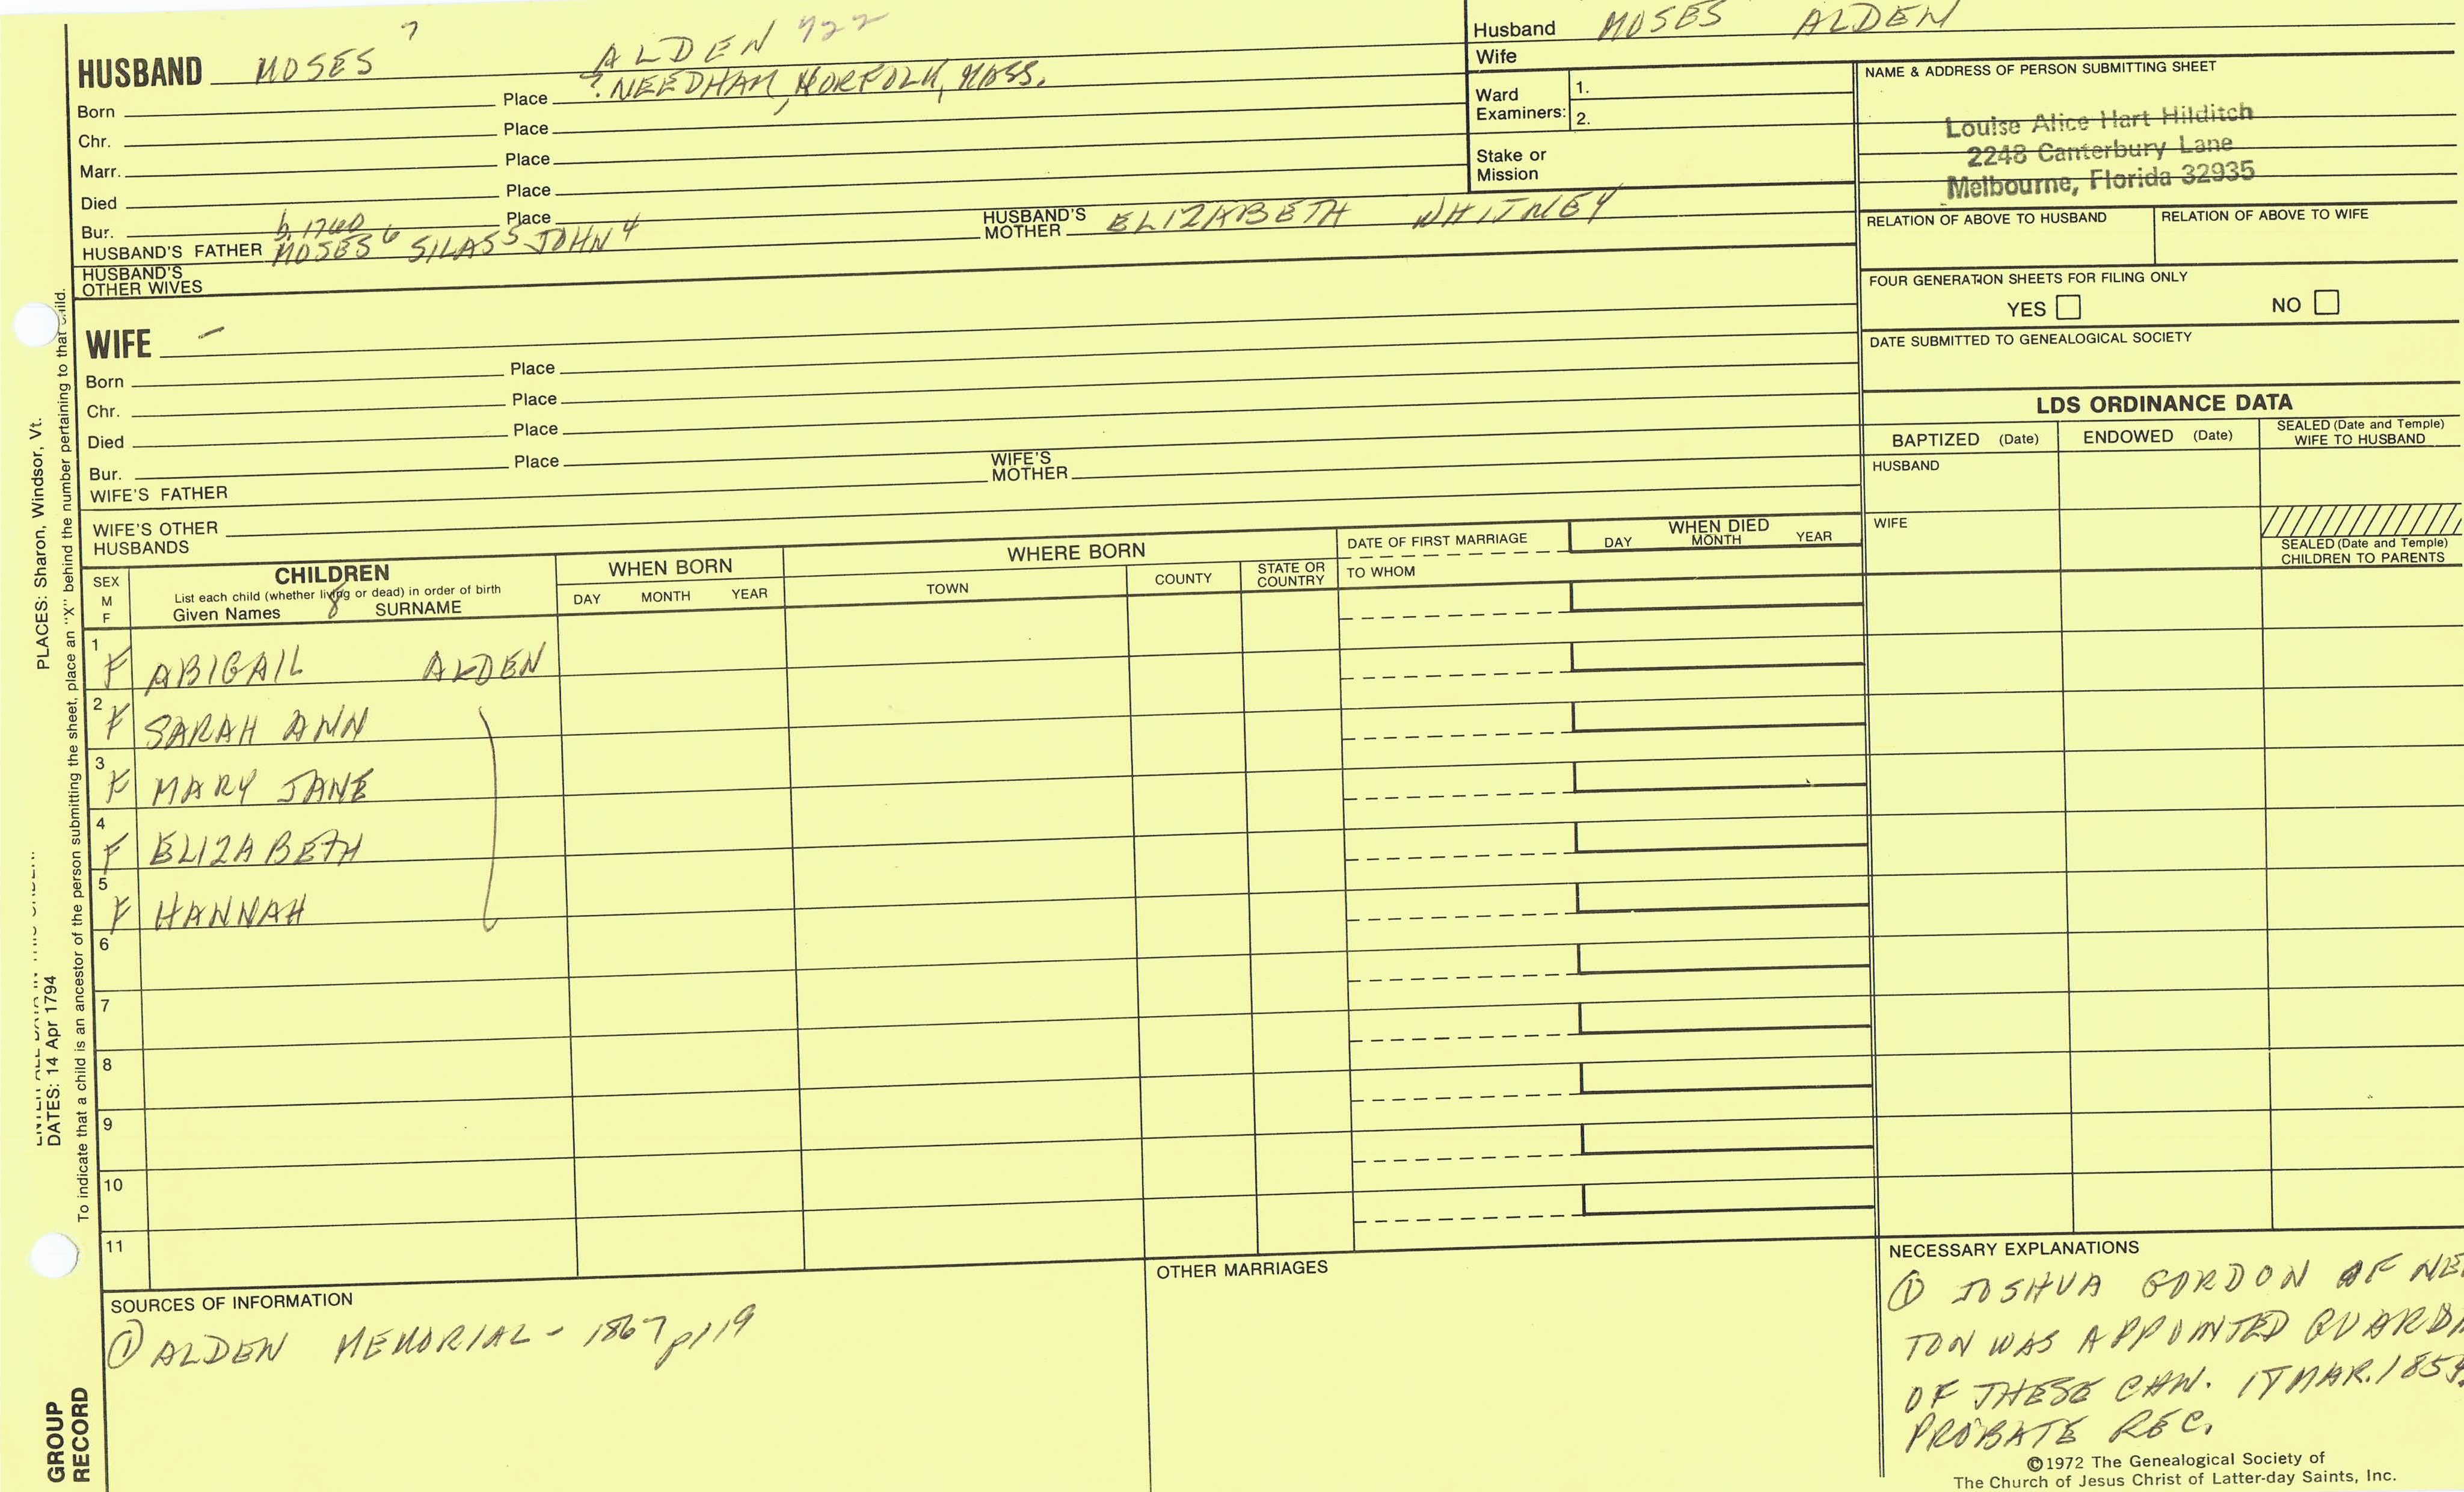 HUSBAND MOSES 7 ALDEN 722
Born Place ? NEEDHAM, NORFOLK, MASS.
Chr. Place
Marr. Place
Died Place
Bur. Place
b. 1760
HUSBAND'S FATHER MOSES 6 SILAS 5 JOHN 4 HUSBAND'S MOTHER ELIZABETH WHITNEY
HUSBAND'S OTHER WIVES
WIFE –
Born Place
Chr. Place
Died Place
Bur. Place
WIFE'S FATHER WIFE'S MOTHER
WIFE'S OTHER HUSBANDS
Husband MOSES ALDEN
Wife
Ward Examiners: 1.
2.
Stake or Mission
NAME & ADDRESS OF PERSON SUBMITTING SHEET
Louise Alice Hart Hilditch
2248 Canterbury Lane
Melbourne, Florida 32935
RELATION OF ABOVE TO HUSBAND RELATION OF ABOVE TO WIFE
FOUR GENERATION SHEETS FOR FILING ONLY
YES NO
DATE SUBMITTED TO GENEALOGICAL SOCIETY
LDS ORDINANCE DATA
BAPTIZED (Date) ENDOWED (Date) SEALED (Date and Temple) WIFE TO HUSBAND
HUSBAND
WIFE
SEALED (Date and Temple) CHILDREN TO PARENTS
SEX M F
CHILDREN
List each child (whether living or dead) in order of birth
Given Names 8 SURNAME
WHEN BORN
DAY MONTH YEAR
WHERE BORN
TOWN COUNTY STATE OR COUNTRY
DATE OF FIRST MARRIAGE
TO WHOM
WHEN DIED
DAY MONTH YEAR
1 F ABIGAIL ALDEN
2 F SARAH ANN
3 F MARY JANE
4 F ELIZABETH
5 F HANNAH
6
7
8
9
10
11
SOURCES OF INFORMATION
① ALDEN MEMORIAL - 1867 p119
OTHER MARRIAGES
NECESSARY EXPLANATIONS
① JOSHUA GORDON OF NE
TON WAS APPOINTED GUARD
OF THESE CHN. MAR. 185
PROBATE REC.
©1972 The Genealogical Society of
The Church of Jesus Christ of Latter-day Saints, Inc.
PLACES: Sharon, Windsor, Vt.
DATES: 14 Apr 1794
To indicate that a child is an ancestor of the person submitting the sheet, place an "X" behind the number pertaining to that child.
GROUP
RECORD